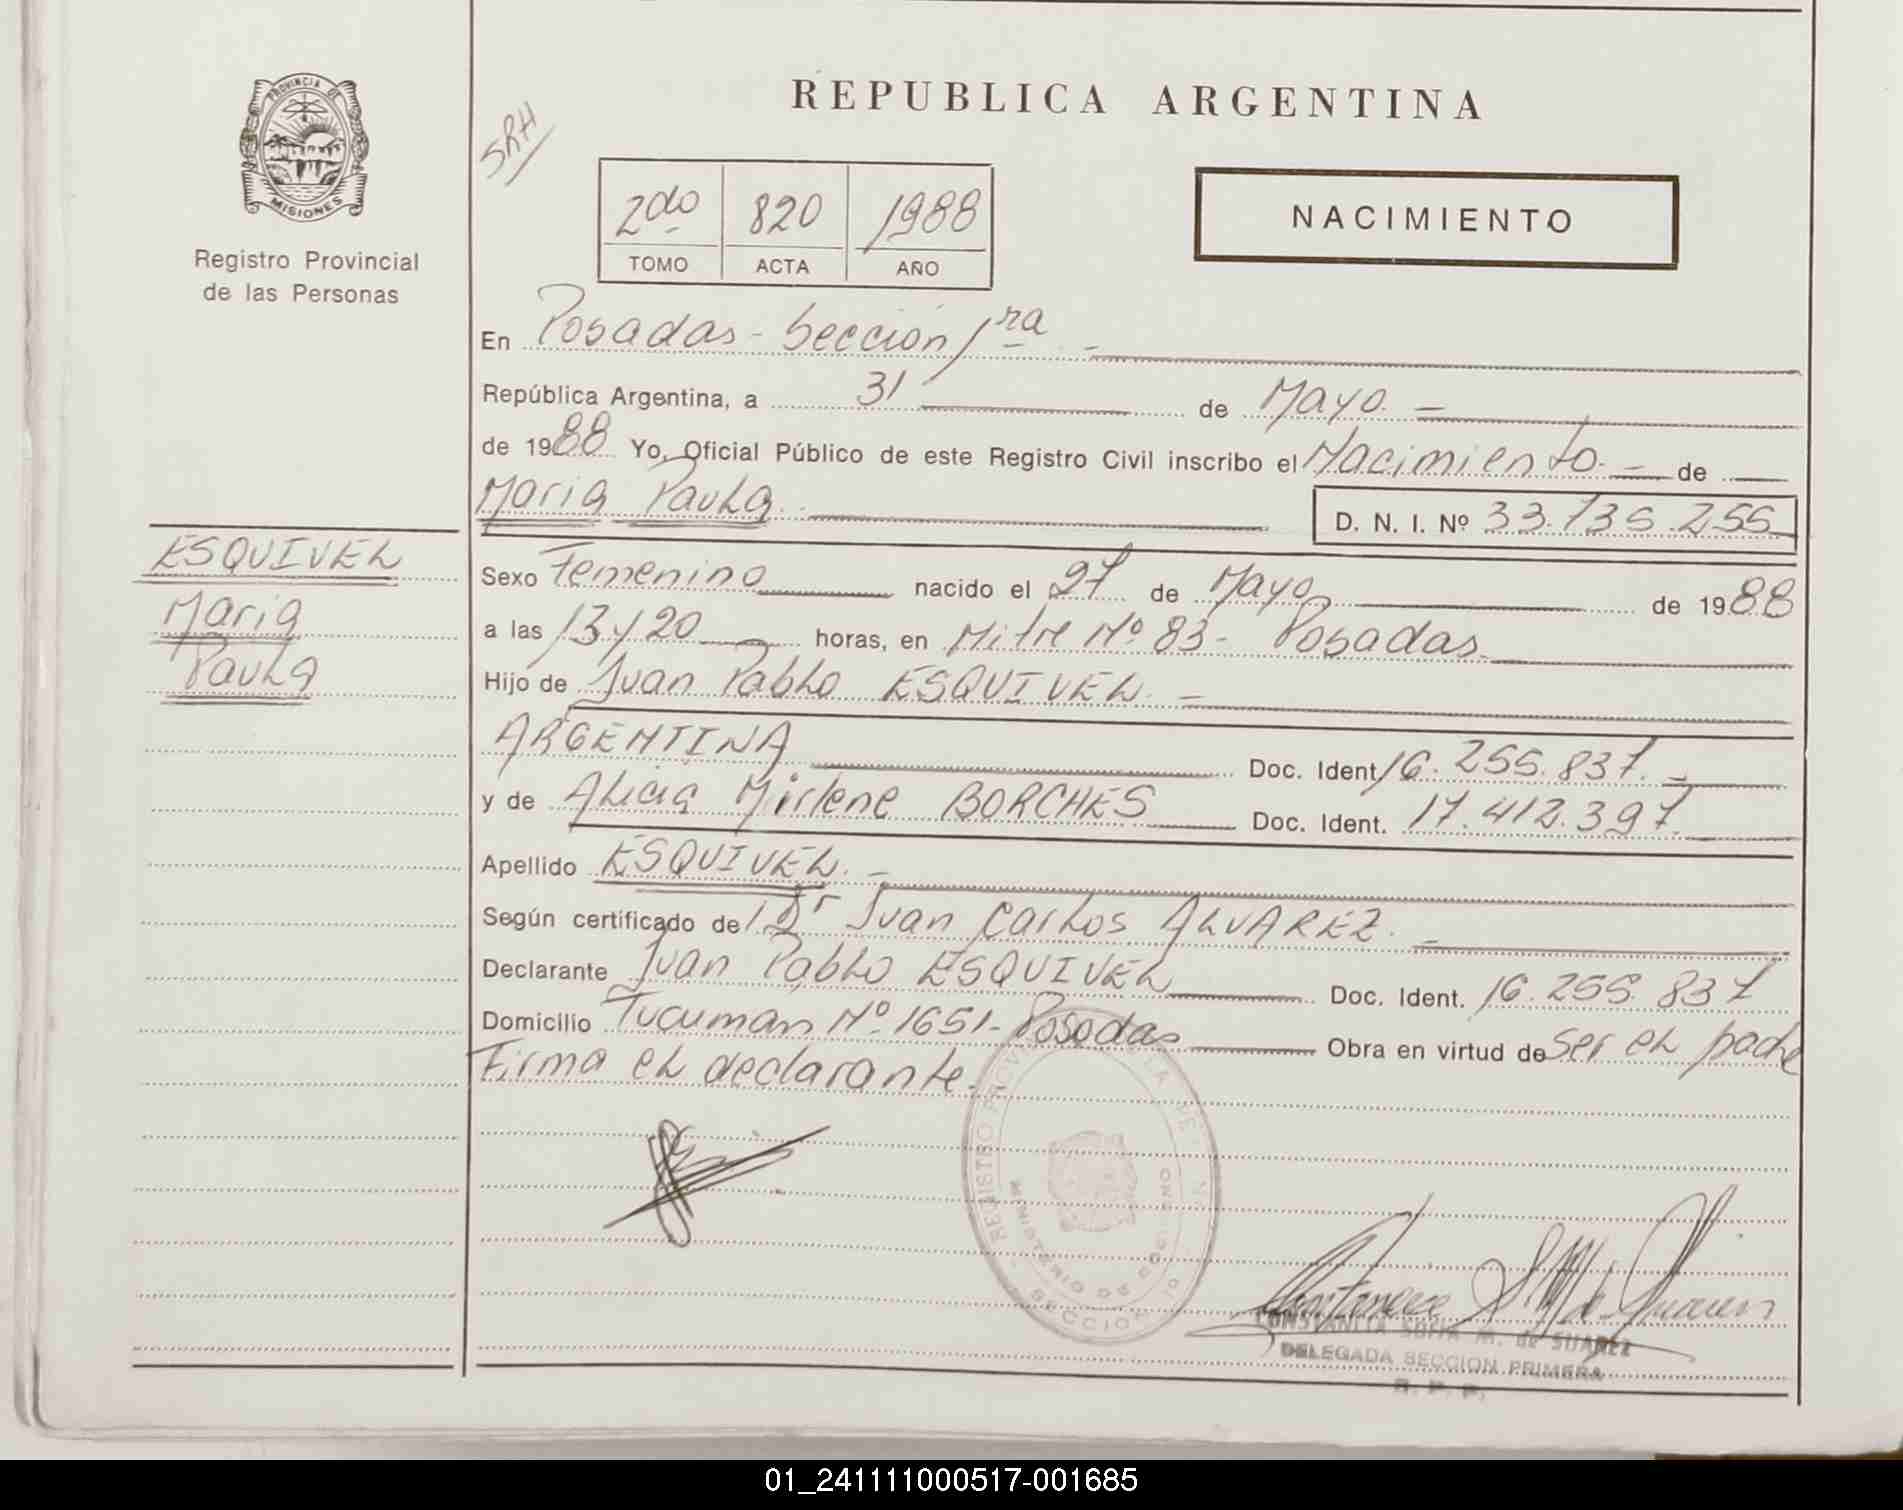 PROVINCIA DE
MISIONES
Registro Provincial
de las Personas
SRH
REPUBLICA ARGENTINA
2do 820 1988
TOMO ACTA AÑO
NACIMIENTO
En Posadas - Sección 1ra. -
República Argentina, a 31 de Mayo. -
de 1988 Yo, Oficial Público de este Registro Civil inscribo el Nacimiento. - de
Maria Paula. D. N. I. Nº 33.735.255
ESQUIVEL
Maria
Paula
Sexo Femenino nacido el 27 de Mayo de 1988
a las 13 y 20 horas, en Mitre Nº 83 - Posadas.
Hijo de Juan Pablo ESQUIVEL. -
ARGENTINA Doc. Ident. 16.255.837. -
y de Alicia Mirlene BORCHES Doc. Ident. 17.412.397.
Apellido ESQUIVEL. -
Según certificado del Dr Juan Carlos ALVAREZ. -
Declarante Juan Pablo ESQUIVEL Doc. Ident. 16.255.837
Domicilio Tucuman Nº 1651 - Posadas Obra en virtud de ser el padre
Firma el declarante.
REGISTRO MINISTERIO DE GOBIERNO
SECCION
CONSTANCIA SOFIA M. de SUAREZ
DELEGADA SECCION PRIMERA
R. P. P.
01_241111000517-001685